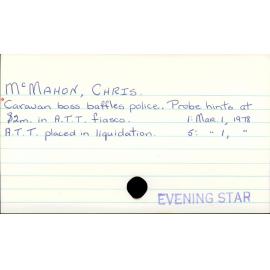 McMAHON, CHRIS.
Caravan boss baffles police. Probe hints at
$2m. in A.T.T. fiasco. 1: Mar. 1, 1978
A.T.T. placed in liquidation. 5: " 1, "
EVENING STAR